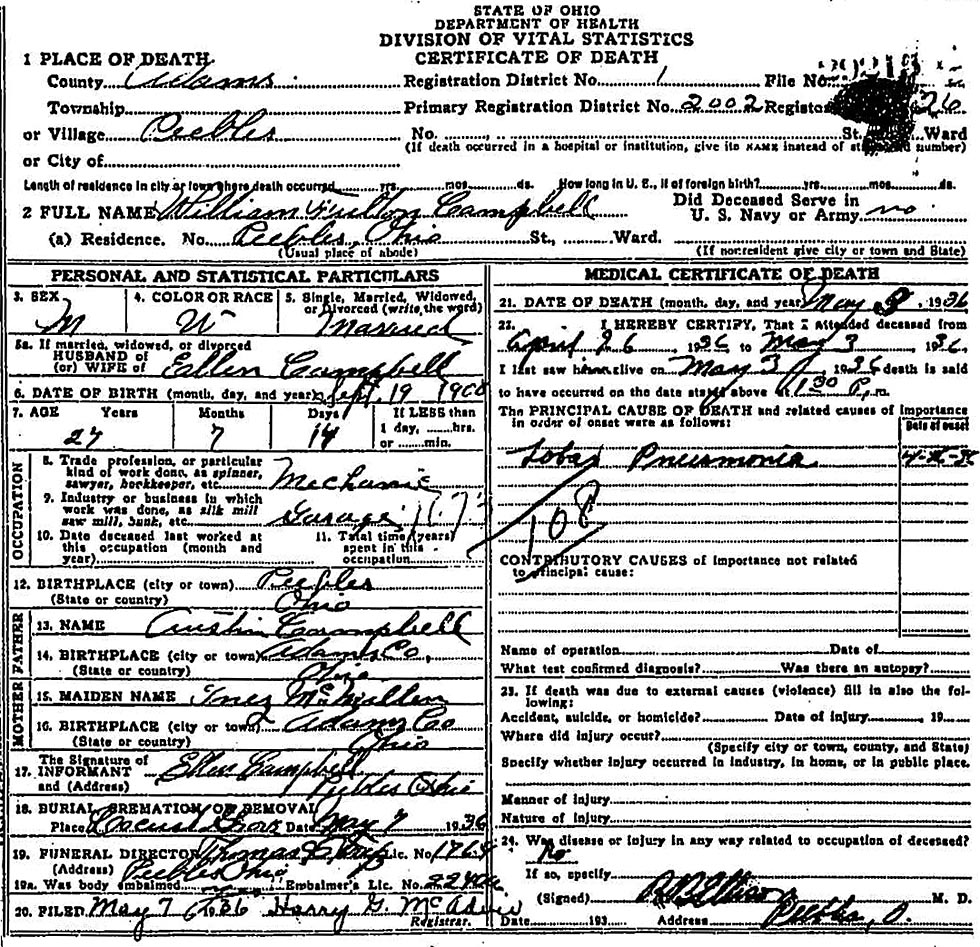 STATE OF OHIO
DEPARTMENT OF HEALTH
DIVISION OF VITAL STATISTICS
CERTIFICATE OF DEATH
1 PLACE OF DEATH
County Adams Registration District No. 1 File No.
Township Primary Registration District No. 2002 Registrar 26
or Village Peebles No. St. Ward
or City of (If death occurred in a hospital or institution, give its NAME instead of number)
Length of residence in city or town where death occurred yrs. mos. ds. How long in U. S., if of foreign birth? yrs. mos. ds.
2 FULL NAME William Fulton Campbell Did Deceased Serve in U. S. Navy or Army no
(a) Residence. No. Peebles, Ohio St., Ward.
(Usual place of abode) (If nonresident give city or town and State)
PERSONAL AND STATISTICAL PARTICULARS
3. SEX M 4. COLOR OR RACE W 5. Single, Married, Widowed, or Divorced (write the word) Married
5a. If married, widowed, or divorced
HUSBAND of
(or) WIFE of Ellen Campbell
6. DATE OF BIRTH (month, day, and year) Sept. 19
7. AGE Years Months Days If LESS than
27 7 14 1 day, hrs.
or min.
OCCUPATION
8. Trade, profession, or particular
kind of work done, as spinner,
sawyer, bookkeeper, etc. Mechanic
9. Industry or business in which
work was done, as silk mill
saw mill, bank, etc. Garage
10. Date deceased last worked at
this occupation (month and
year)
11. Total time (years)
spent in this
occupation
12. BIRTHPLACE (city or town) Peebles
(State or country) Ohio
FATHER
13. NAME Austin Campbell
14. BIRTHPLACE (city or town) Adams Co,
(State or country) Ohio
MOTHER
15. MAIDEN NAME Inez McMillen
16. BIRTHPLACE (city or town) Adams Co
(State or country) Ohio
17. The Signature of
INFORMANT Ellen Campbell
and (Address) Peebles Ohio
18. BURIAL CREMATION OR REMOVAL
Place Locust Grove Date May 7 1936
19. FUNERAL DIRECTOR Thomas Lic. No. 1764
(Address) Peebles Ohio
19a. Was body embalmed yes Embalmer's Lic. No.
20. FILED May 7 1936 Harry G. Registrar.
MEDICAL CERTIFICATE OF DEATH
21. DATE OF DEATH (month, day, and year) May 3, 1936
22. I HEREBY CERTIFY, That I attended deceased from
April 26 1936 to May 3 1936.
I last saw him alive on May 3 1936 death is said
to have occurred on the date stated above at 1:30 P. m.
The PRINCIPAL CAUSE OF DEATH and related causes of importance
in order of onset were as follows: Date of onset
Lobar Pneumonia
108
CONTRIBUTORY CAUSES of importance not related
to principal cause:
Name of operation Date of
What test confirmed diagnosis? Was there an autopsy?
23. If death was due to external causes (violence) fill in also the fol-
lowing:
Accident, suicide, or homicide? Date of injury 19
Where did injury occur?
(Specify city or town, county, and State)
Specify whether injury occurred in industry, in home, or in public place.
Manner of injury
Nature of injury
24. Was disease or injury in any way related to occupation of deceased?
No
If so, specify
(Signed) M. D.
Date 193 Address Peebles, O.